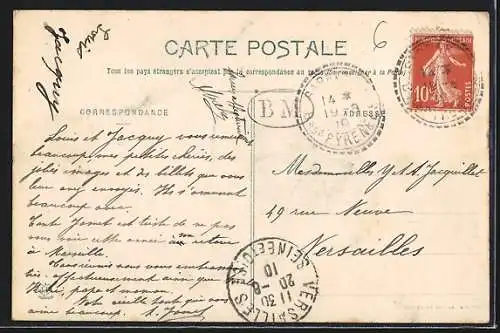 CARTE POSTALE
6
Tous les pays étrangers n'acceptent pas la correspondance au
CORRESPONDANCE
ADRESSE
BM
14 *
19 -8
10
PYRENEES
10
Louis
Jacquy
Louis et Jacquy vous remercient
beaucoup mes petites chéries, des
jolies images et des billets que vous
leur avez envoyés. Ils s'amusent
beaucoup avec.
Tante Jeanet est triste de ne pas
vous voir cette année au retour
à Marseille.
Tous réunis nous vous embrassons
très affectueusement ainsi que
papa et maman.
Votre vieille tante qui vous
aime beaucoup.
Mesdemoiselles Y et A Jacquillet
49 rue Neuve
Versailles
VERSAILLES
11 30
20 -8
10
SEINE ET OISE